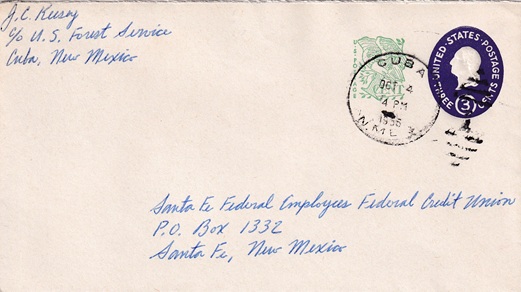 J.C. Kersey
c/o U.S. Forest Service
Cuba, New Mexico
U.S. POSTAGE
CUBA
OCT 4
4 PM
N. MEX.
UNITED STATES POSTAGE
THREE 3 CENTS
Santa Fe Federal Employees Federal Credit Union
P.O. Box 1332
Santa Fe, New Mexico